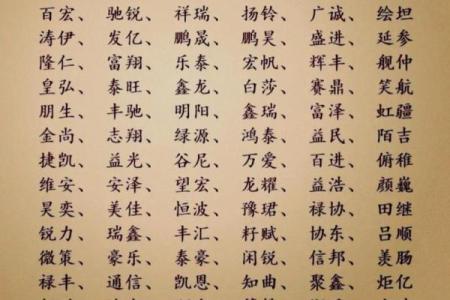 百宏、驰锐、祥瑞、扬铃、广诚、绘坦
涛伊、发亿、鹏晟、鹏昊、盛进、延参
隆仁、富翔、乐泰、宏帆、辉丰、舰仲
皇弘、泰旺、鑫龙、白莎、赛鼎、笑航
朋生、丰驰、明阳、鑫瑞、富泽、虹疆
金尚、志翔、绿源、鸿泰、益民、陌吉
捷凯、益光、谷尼、万爱、百进、俯稚
维安、安泽、望宏、龙耀、益浩、颜巍
昊奕、美佳、恒波、豫珺、禄协、田继
锐力、瑞鑫、丰汇、籽赋、协东、吕顺
微策、豪乐、泰豪、闲锐、信邦、羑肠
禄丰、通信、凯恩、知曲、聚鑫、炬亿